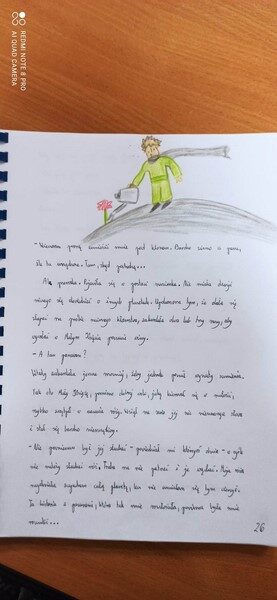 REDMI NOTE 8 PRO
AI QUAD CAMERA
- Wieczorem proszę umieścić mnie pod kloszem. Bardzo zimno u pana,
źle tu urządzone. Tam, skąd pochodzę...
Ale przerwała. Przybyła tu w postaci nasionka. Nie miała okazji
się dowiedzieć o innych planetach. że dała się
złapać na kłamstwa, zakasłała dwa lub trzy razy, aby
u Małego Księcia poczucie winy.
- A ten parawan?
Wtedy zakasłała jeszcze mocniej, żeby jednak poczuł wyrzuty sumienia.
Tak oto Mały Książę, pomimo dobrej woli, jaką w miłości,
szybko zwątpił w Wziął na serio jej nic nieznaczące słowa
i stał się bardzo nieszczęśliwy.
- Nie powinienem był jej słuchać - powiedział mi któregoś dnia - nigdy
nie należy słuchać róż. Trzeba na nie patrzeć i je wąchać. Moja róża
napełniała zapachem całą planetę, lecz nie umiałem się tym cieszyć.
Ta historia z pazurami, która tak mnie rozdrażniła, powinna była mnie
wzruszyć...
26